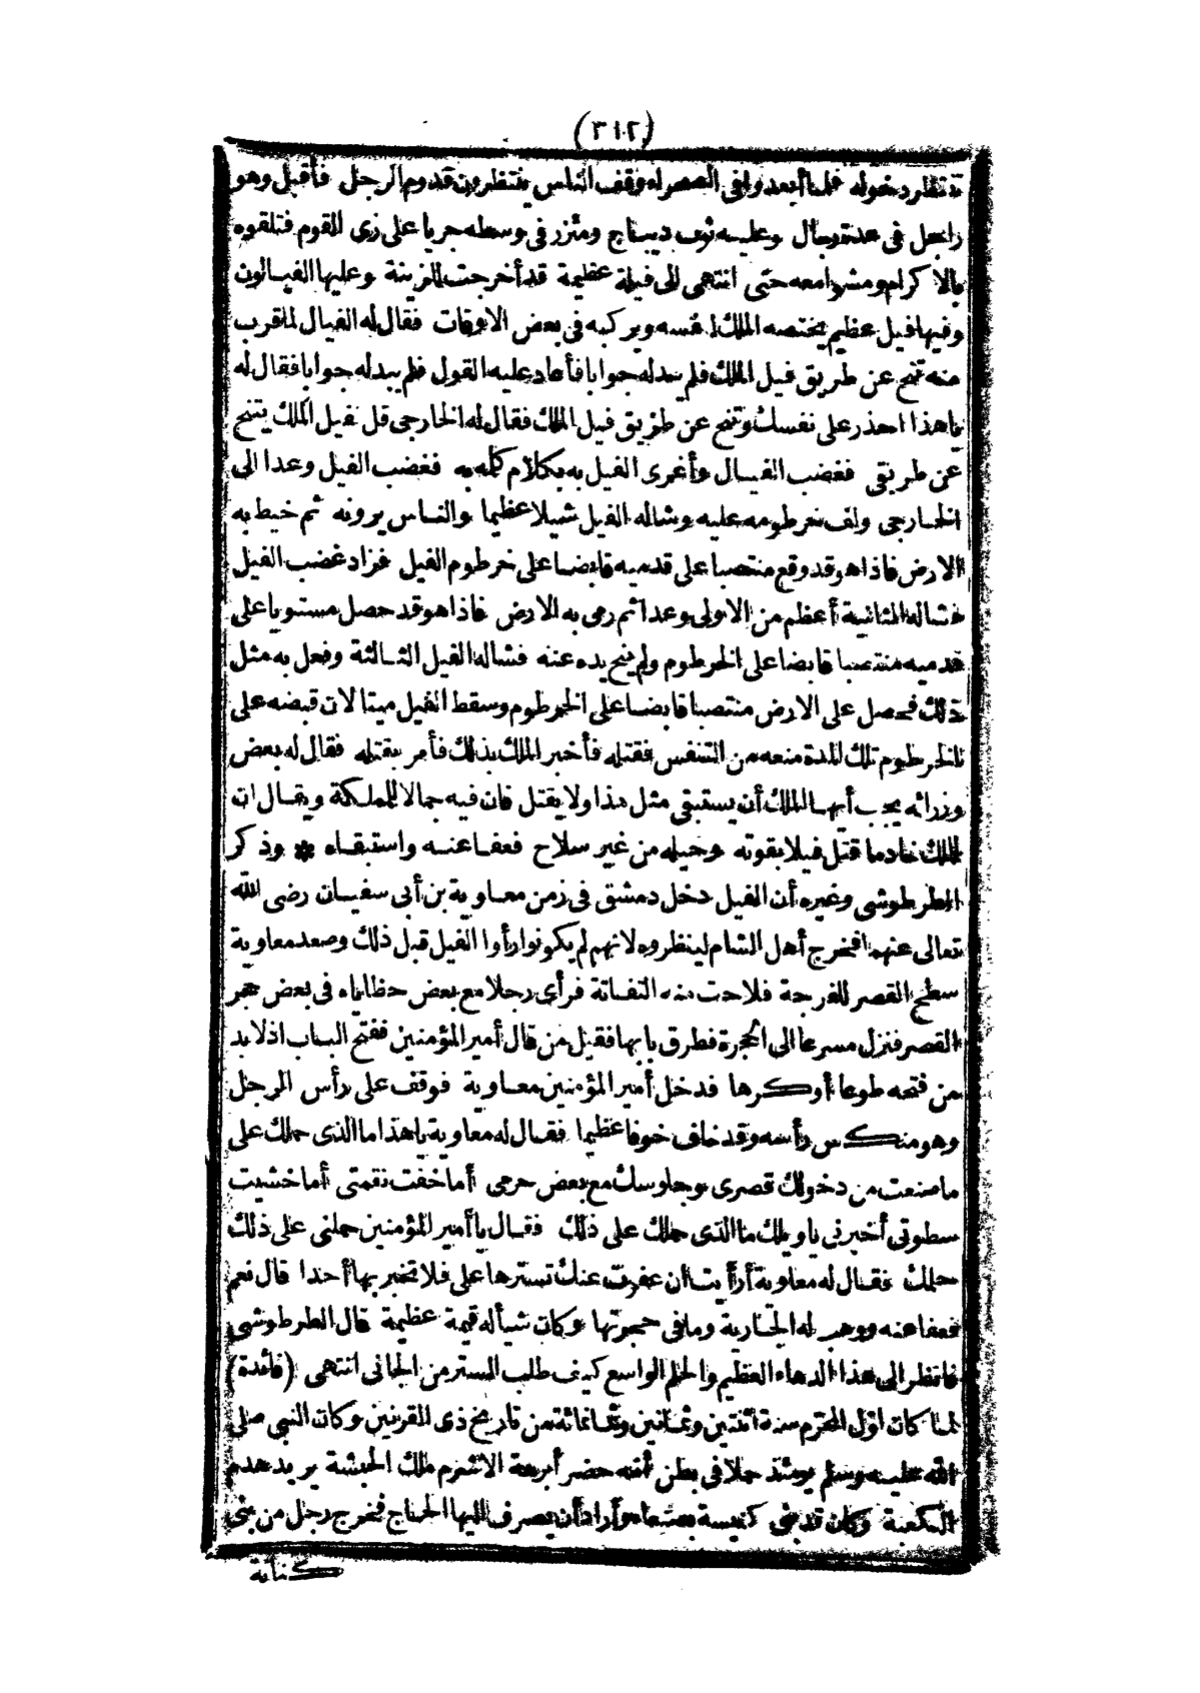 (٣١٢)
تنتظر دخوله فلما أبعدوا فى الصحراء وقف الناس ينتظرون قدوم الرجل فأقبل وهو
راجل فى عدة رجال وعليه ثوب ديباج ومئزر فى وسطه جريا على زى القوم فتلقوه
بالاكرام ومشوا معه حتى انتهى الى فيلة عظيمة قد أخرجت للزينة وعليها الفيالون
وفيها فيل عظيم يختصه الملك لنفسه ويركبه فى بعض الاوقات فقال له الفيال لما قرب
منه تنح عن طريق فيل الملك فلم يبد له جوابا فأعاد عليه القول فلم يبد له جوابا فقال له
ياهذا احذر على نفسك وتنح عن طريق فيل الملك فقال له الخارجى قل لفيل الملك يتنح
عن طريقى فغضب الفيال وأغرى الفيل به بكلام كلمه به فغضب الفيل وعدا الى
الخارجى ولف خرطومه عليه وشاله الفيل شيلا عظيما والناس يرونه ثم خبط به
الارض فاذا هو قد وقع منتصبا على قدميه قابضا على خرطوم الفيل فزاد غضب الفيل
فشاله الثانية أعظم من الاولى وعدا ثم رمى به الارض فاذا هو قد حصل مستويا على
قدميه منتصبا قابضا على الخرطوم ولم ينح يده عنه فشاله الفيل الثالثة وفعل به مثل
ذلك فحصل على الارض منتصبا قابضا على الخرطوم وسقط الفيل ميتا لان قبضه على
الخرطوم تلك المدة منعه من التنفس فقتله فأخبر الملك بذلك فأمر بقتله فقال له بعض
وزرائه يجب أيها الملك أن يستبقى مثل هذا ولا يقتل فان فيه جمالا للمملكة ويقال ان
للملك خادما قتل فيلا بقوته وحيله من غير سلاح فعفا عنه واستبقاه * وذكر
الطرطوشى وغيره أن الفيل دخل دمشق فى زمن معاوية بن أبى سفيان رضى الله
تعالى عنهما فخرج أهل الشام لينظروه لانهم لم يكونوا رأوا الفيل قبل ذلك وصعد معاوية
سطح القصر للفرجة فلاحت منه التفاتة فرأى رجلا مع بعض حظاياه فى بعض حجر
القصر فنزل مسرعا الى الحجرة فطرق بابها فقيل من قال أمير المؤمنين ففتح الباب اذ لا بد
من فتحه طوعا أو كرها فدخل أمير المؤمنين معاوية فوقف على رأس الرجل
وهو منكس رأسه وقد خاف خوفا عظيما فقال له معاوية ياهذا ما الذى حملك على
ما صنعت من دخولك قصرى وجلوسك مع بعض حرمى أما خفت نقمتى أما خشيت
سطوتى أخبرنى يا ويلك ما الذى حملك على ذلك فقال يا أمير المؤمنين حملنى على ذلك
حلمك فقال له معاوية أرأيت ان عفوت عنك تسترها على فلا تخبر بها أحدا قال نعم
فعفا عنه ووهب له الجارية وما فى حجرتها وكان شيأ له قيمة عظيمة قال الطرطوشى
فانظر الى هذا الدهاء العظيم والحلم الواسع كيف طلب الستر من الجانى انتهى (فائدة)
لما كان اول المحرم سنة اثنتين وثمانين وثمانمائة من تاريخ ذى القرنين وكان النبى صلى
الله عليه وسلم يومئذ حملا فى بطن أمه حضر أبرهة الاشرم ملك الحبشة يريد هدم
الكعبة وكان قد بنى كنيسة بصنعاء وأراد أن يصرف اليها الحاج فخرج رجل من بنى
كنانة